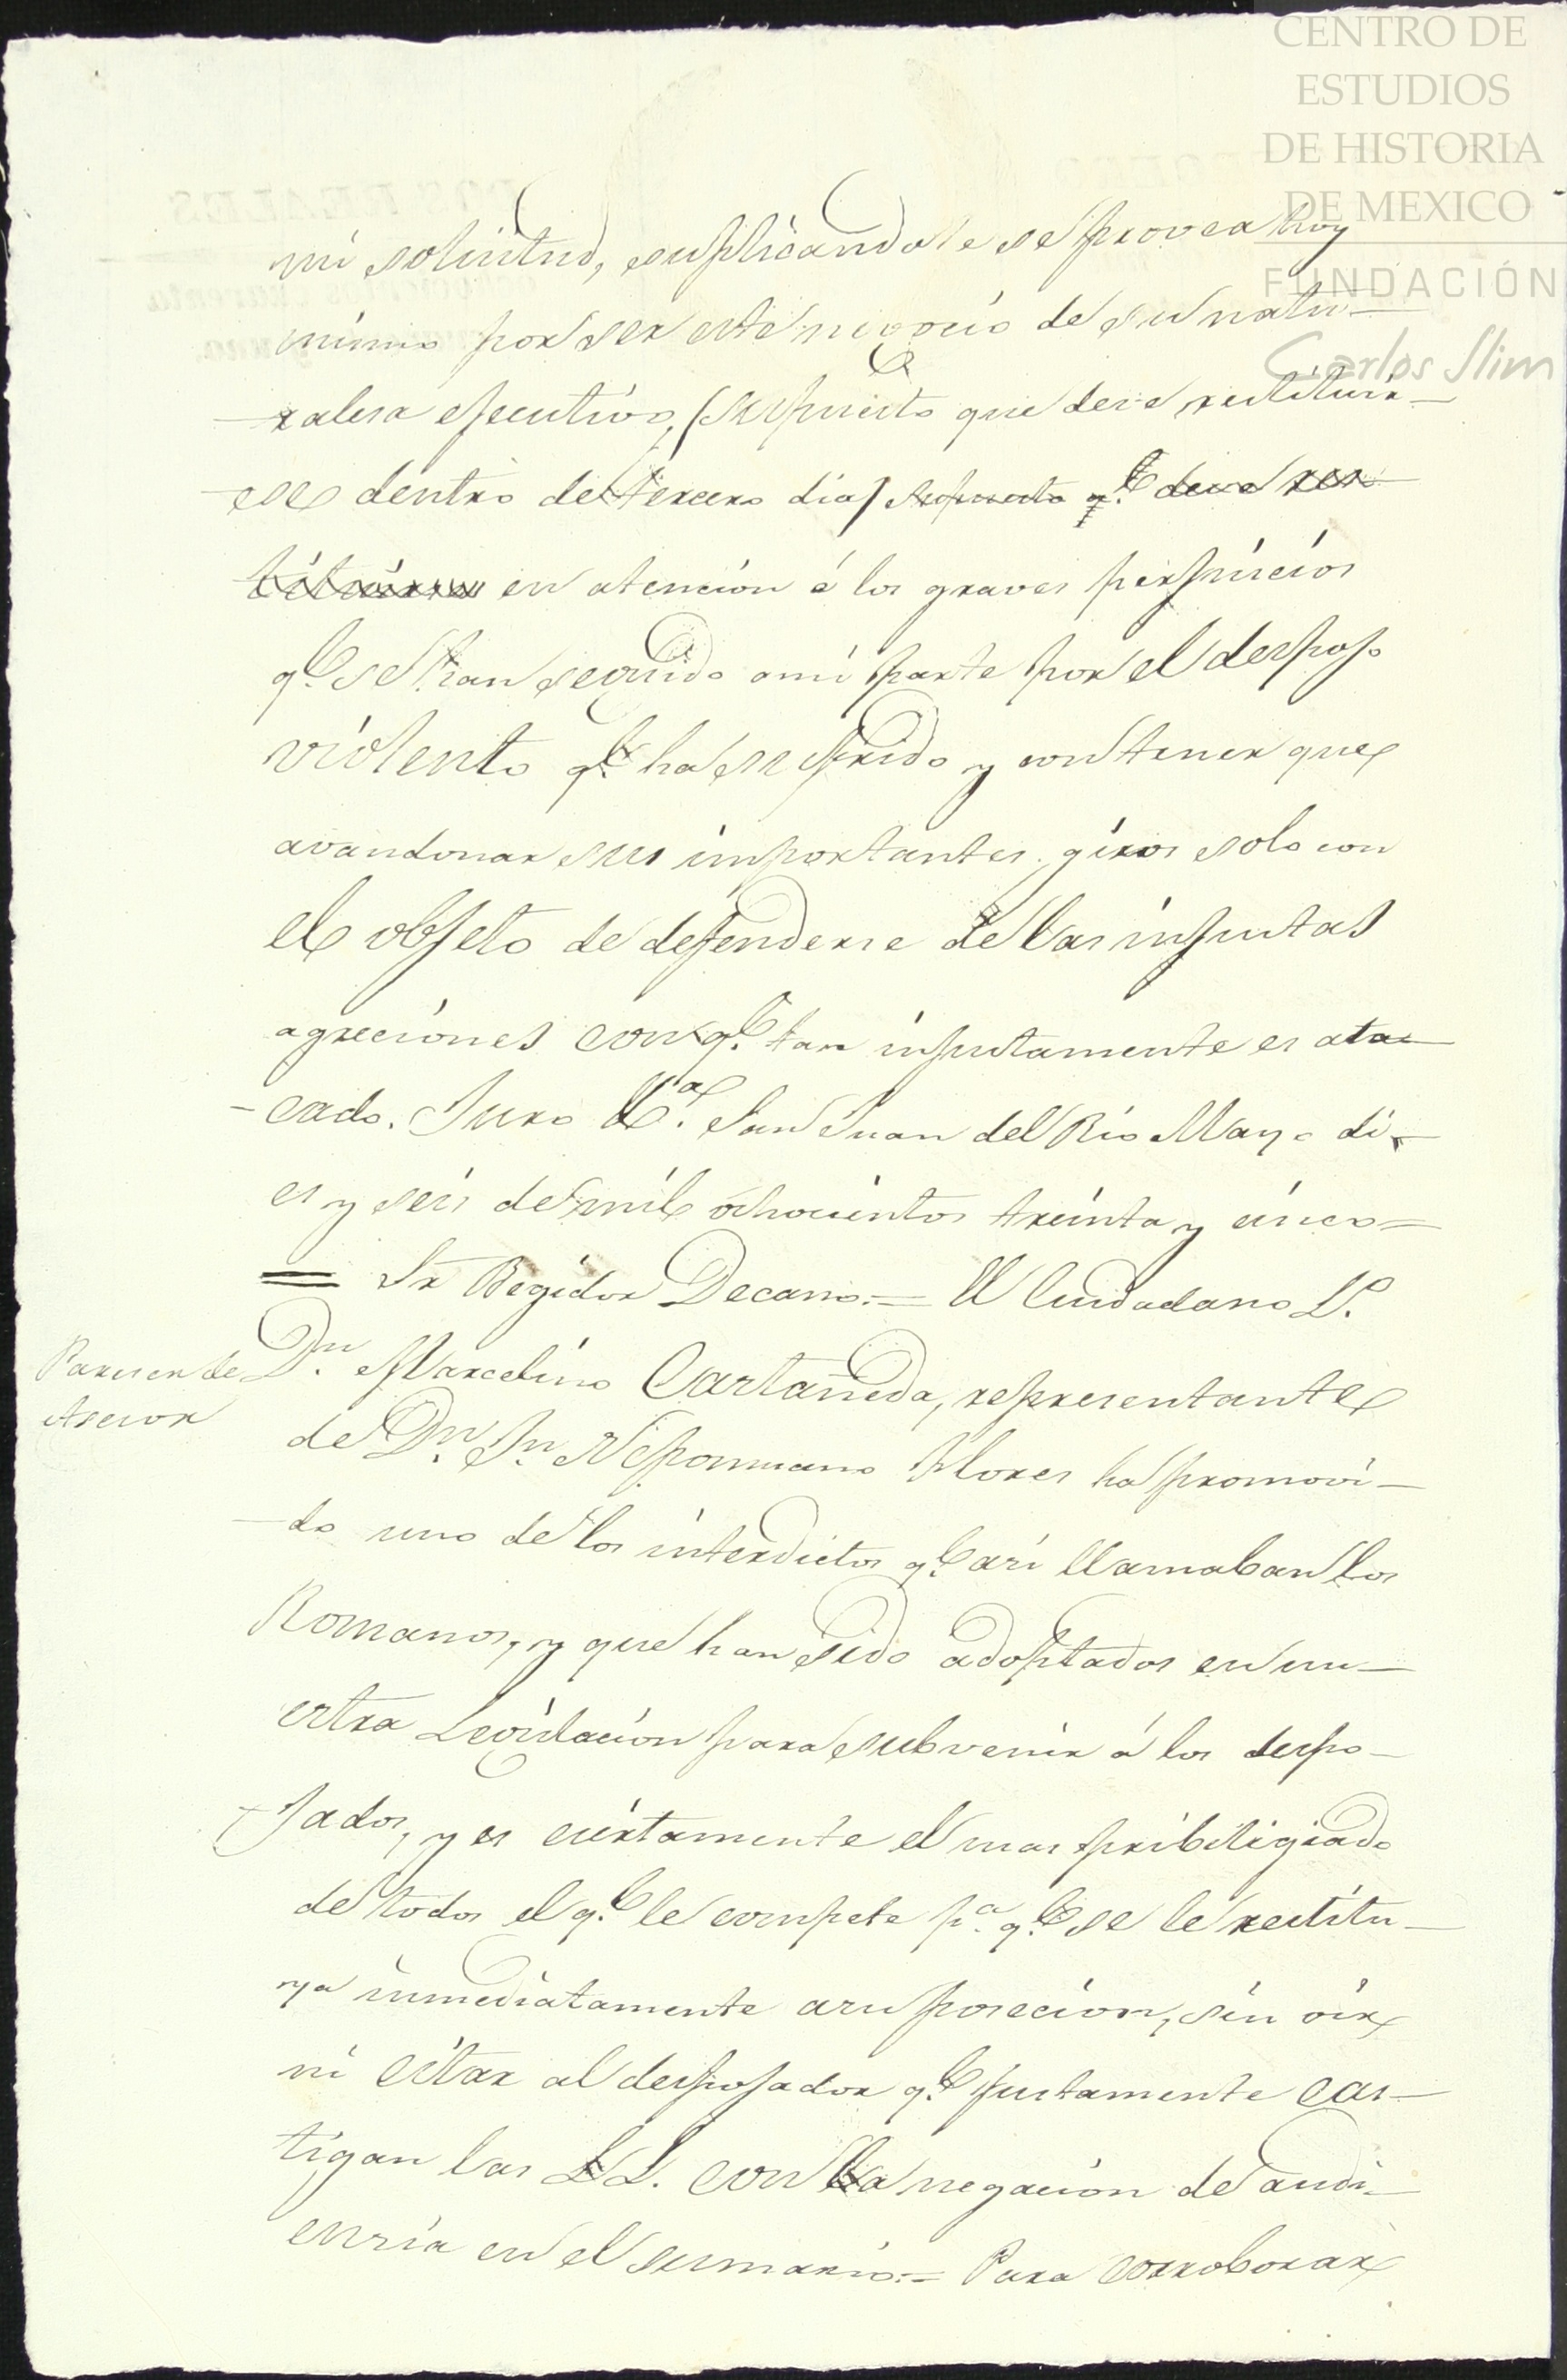 CENTRO DE
ESTUDIOS
DE HISTORIA
DE MEXICO
FUNDACIÓN
Carlos Slim
mi solicitud, suplicandole se provea hoy
mismo por ser este negocio de su natu-
-ralesa ejecutivo, (supuesto que deve restituir-
-se dentro de tercero dia) supuesto q.e deve res-
tituirse en atencion á los graves perjuicios
q.e se han seguido a mi parte por el despojo
violento q.e ha sufrido y con tener que
avandonar sus importantes giros solo con
el objeto de defenderse de las injustas
agreciones con q.e tan injustamente es ata-
-cado. Juro &.a San Juan del Rio Mayo di-
es y seis de mil ochocientos treinta y cinco=
= Sr Regidor Decano.= El Ciudadano L.
Pareser de
Asesor
Dn. Marcelino Castañeda, representante
de Dn. Jn. Nepomuceno Flores ha promovi-
-do uno de los interdictos q.e asi llamaban los
Romanos, y que han sido adoptados en nu-
estra Legislacion para subvenir á los despo-
jados, y es ciertamente el mas pribiligiado
de todos el q.e le compete p.a q.e se le restitu-
ya inmediatamente asu posecion, sin oir
ni citar al despojador q.e justamente cas-
tigan las LL. con la negacion de audi-
encia en el sumario.= Para corroborar